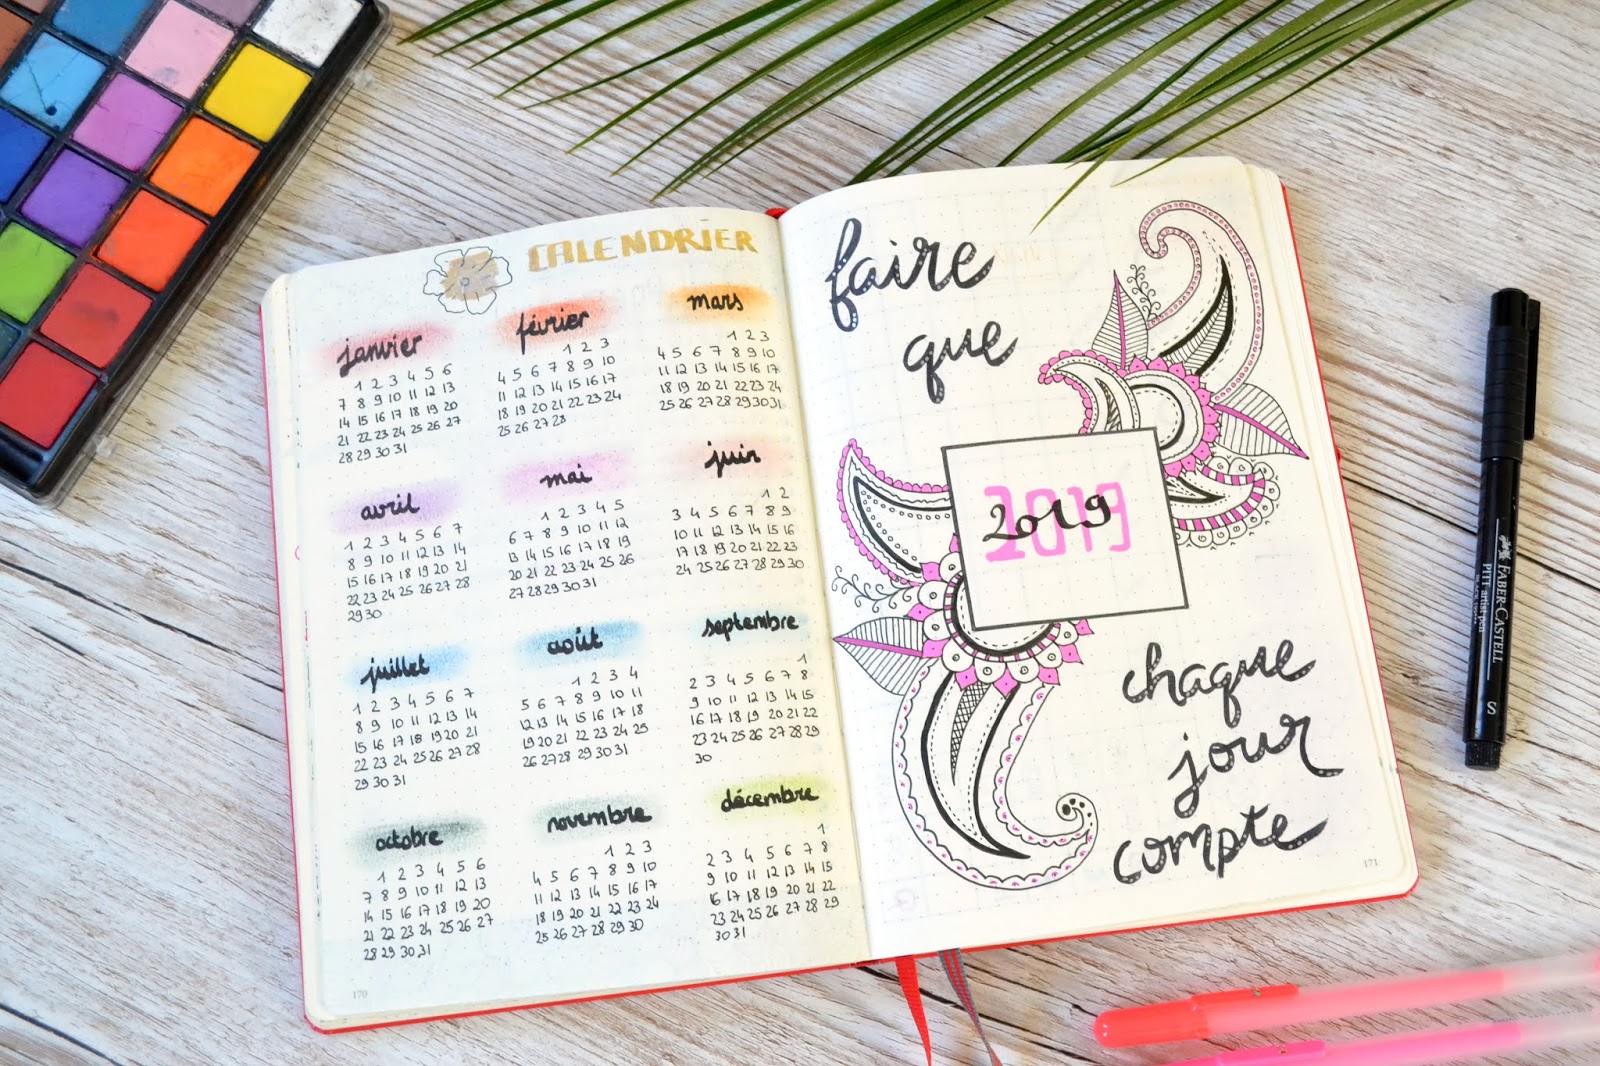 CALENDRIER
janvier
1 2 3 4 5 6
7 8 9 10 11 12 13
14 15 16 17 18 19 20
21 22 23 24 25 26 27
28 29 30 31
février
1 2 3
4 5 6 7 8 9 10
11 12 13 14 15 16 17
18 19 20 21 22 23 24
25 26 27 28
mars
1 2 3
4 5 6 7 8 9 10
11 12 13 14 15 16 17
18 19 20 21 22 23 24
25 26 27 28 29 30 31
avril
1 2 3 4 5 6 7
8 9 10 11 12 13 14
15 16 17 18 19 20 21
22 23 24 25 26 27 28
29 30
mai
1 2 3 4 5
6 7 8 9 10 11 12
13 14 15 16 17 18 19
20 21 22 23 24 25 26
27 28 29 30 31
juin
1 2
3 4 5 6 7 8 9
10 11 12 13 14 15 16
17 18 19 20 21 22 23
24 25 26 27 28 29 30
juillet
1 2 3 4 5 6 7
8 9 10 11 12 13 14
15 16 17 18 19 20 21
22 23 24 25 26 27 28
29 30 31
août
1 2 3 4
5 6 7 8 9 10 11
12 13 14 15 16 17 18
19 20 21 22 23 24 25
26 27 28 29 30 31
septembre
1
2 3 4 5 6 7 8
9 10 11 12 13 14 15
16 17 18 19 20 21 22
23 24 25 26 27 28 29
30
octobre
1 2 3 4 5 6
7 8 9 10 11 12 13
14 15 16 17 18 19 20
21 22 23 24 25 26 27
28 29 30 31
novembre
1 2 3
4 5 6 7 8 9 10
11 12 13 14 15 16 17
18 19 20 21 22 23 24
25 26 27 28 29 30
décembre
1
2 3 4 5 6 7 8
9 10 11 12 13 14 15
16 17 18 19 20 21 22
23 24 25 26 27 28 29
30 31
170
faire
que
2019
2019
chaque
jour
compte
171
FABER-CASTELL
PITT artist pen
S